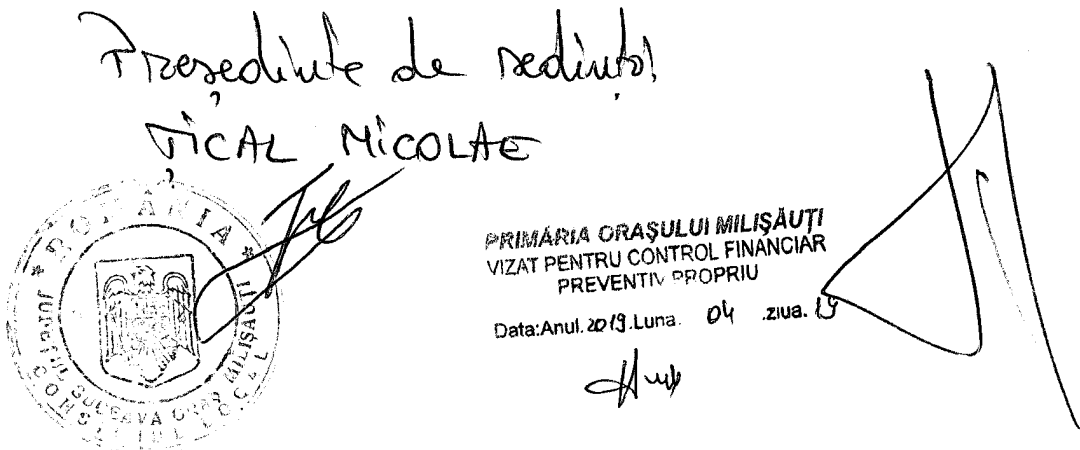 Președinte de ședință
ȚICAL NICOLAE
ROMÂNIA
JUDEȚUL SUCEAVA ORAȘ MILIȘĂUȚI
CONSILIUL LOCAL
PRIMĂRIA ORAȘULUI MILIȘĂUȚI
VIZAT PENTRU CONTROL FINANCIAR
PREVENTIV PROPRIU
Data:Anul.2019.Luna. 04 .ziua. 19